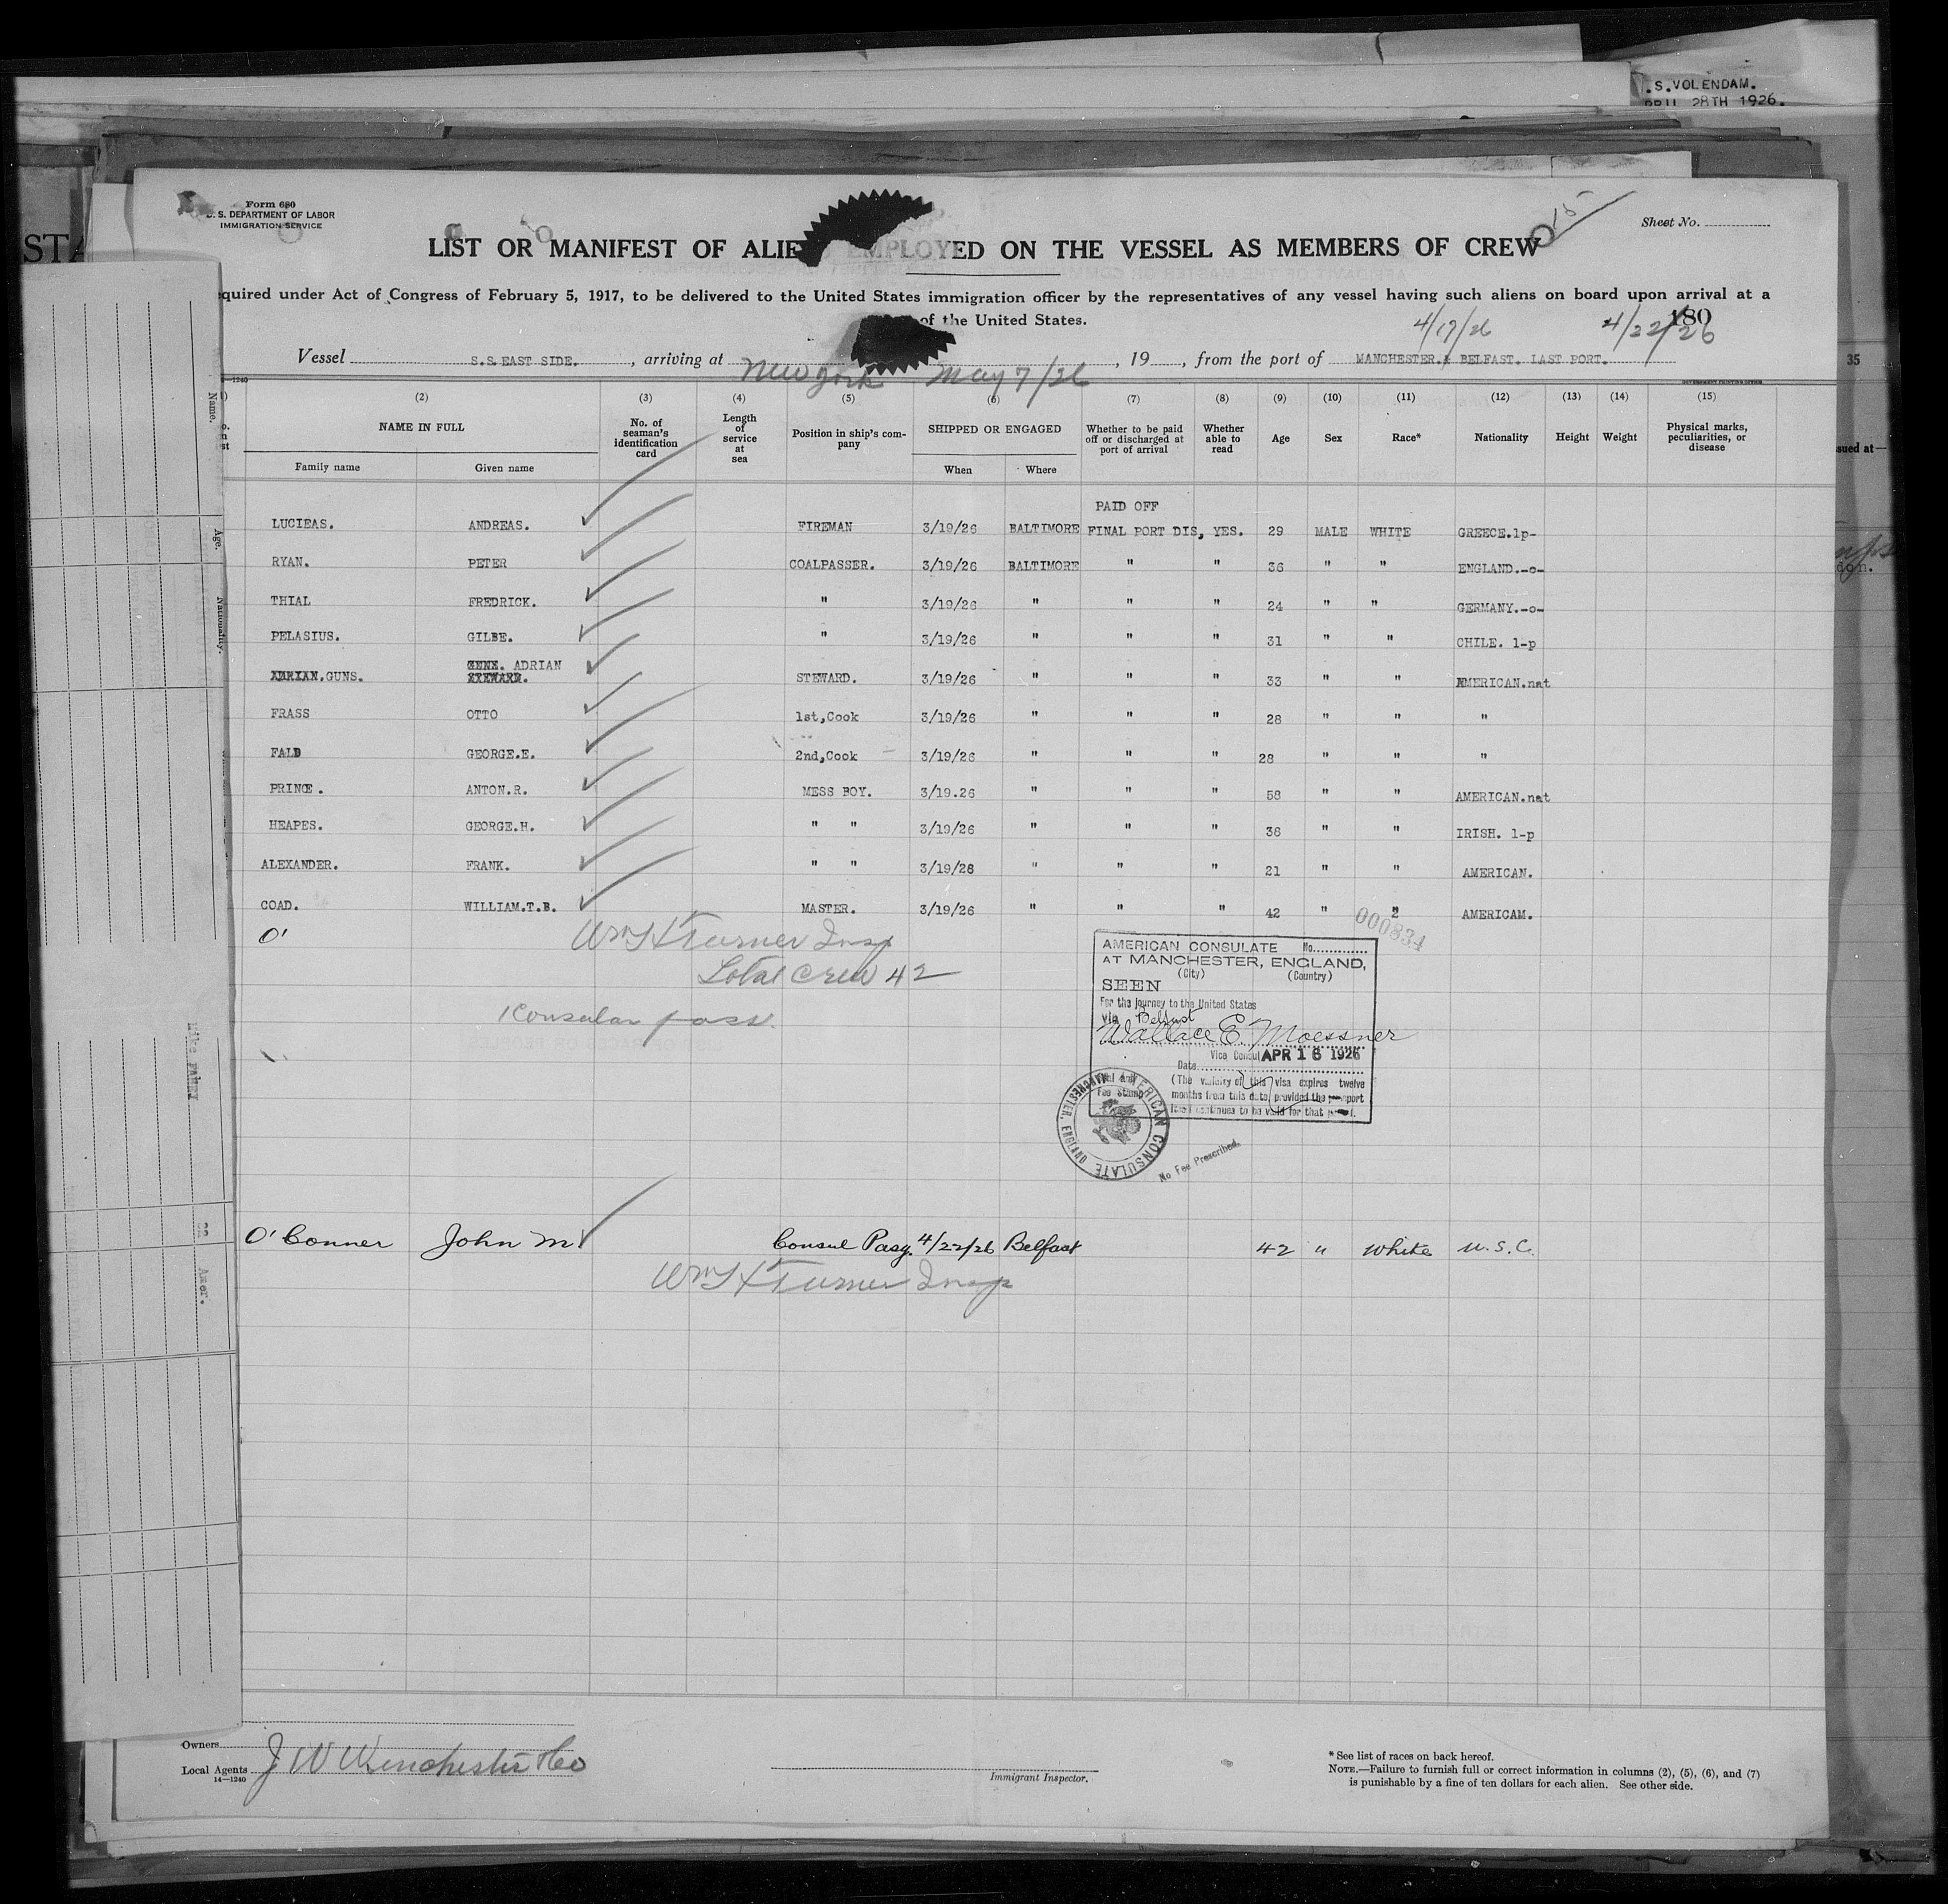 .S.VOLENDAM.
PRIL 28TH 1926.
STA
Form 680
U. S. DEPARTMENT OF LABOR
IMMIGRATION SERVICE
Sheet No.
015
LIST OR MANIFEST OF ALIENS EMPLOYED ON THE VESSEL AS MEMBERS OF CREW
quired under Act of Congress of February 5, 1917, to be delivered to the United States immigration officer by the representatives of any vessel having such aliens on board upon arrival at a
of the United States.
4/17/26 4/22/26 180
Vessel S.S. EAST SIDE. , arriving at New York May 7/26 , 19 , from the port of MANCHESTER.& BELFAST. LAST PORT.
35
(2) (3) (4) (5) (6) (7) (8) (9) (10) (11) (12) (13) (14) (15)
NAME IN FULL
Family name Given name
No. of seaman's identification card
Length of service at sea
Position in ship's company
SHIPPED OR ENGAGED
When Where
Whether to be paid off or discharged at port of arrival
Whether able to read
Age Sex Race* Nationality Height Weight
Physical marks, peculiarities, or disease
Name.
Age.
Nationality.
sued at—
PAID OFF
LUCIEAS. ANDREAS. FIREMAN 3/19/26 BALTIMORE FINAL PORT DIS, YES. 29 MALE WHITE GREECE.1p-
RYAN. PETER COALPASSER. 3/19/26 BALTIMORE " " 36 " " ENGLAND.-o-
THIAL FREDRICK. " 3/19/26 " " " 24 " " GERMANY.-o-
PELASIUS. GILBE. " 3/19/26 " " " 31 " " CHILE. 1-p
ADRIAN.GUNS. GENE. ADRIAN STEWARD. STEWARD. 3/19/26 " " " 33 " " AMERICAN.nat
FRASS OTTO 1st,Cook 3/19/26 " " " 28 " " "
FALB GEORGE.E. 2nd,Cook 3/19/26 " " " 28 " " "
PRINCE. ANTON.R. MESS BOY. 3/19.26 " " " 58 " " AMERICAN.nat
HEAPES. GEORGE.H. " " 3/19/26 " " " 38 " " IRISH. 1-p
ALEXANDER. FRANK. " " 3/19/26 " " " 21 " " AMERICAN.
COAD. WILLIAM.T.B. MASTER. 3/19/26 " " " 42 " " AMERICAM.
O'
000834
Wm H Turner Insp
Total Crew 42
1 Consular pass.
AMERICAN CONSULATE No.
AT MANCHESTER, ENGLAND,
(City) (Country)
SEEN
For the journey to the United States
via Belfast
Wallace E. Moessner
Vice Consul
Date APR 16 1926
(The validity of this visa expires twelve
months from this date, provided the passport
itself continues to be valid for that period.
Fee Stamp
AMERICAN CONSULATE MANCHESTER, ENGLAND
No Fee Prescribed.
O'Conner John M Consul Pasg. 4/22/26 Belfast 42 " White U.S.C.
Wm H Turner Insp
Mike
Amer.
Owners
Local Agents J W Winchester & Co
14—1240
Immigrant Inspector.
* See list of races on back hereof.
NOTE.—Failure to furnish full or correct information in columns (2), (5), (6), and (7)
is punishable by a fine of ten dollars for each alien. See other side.